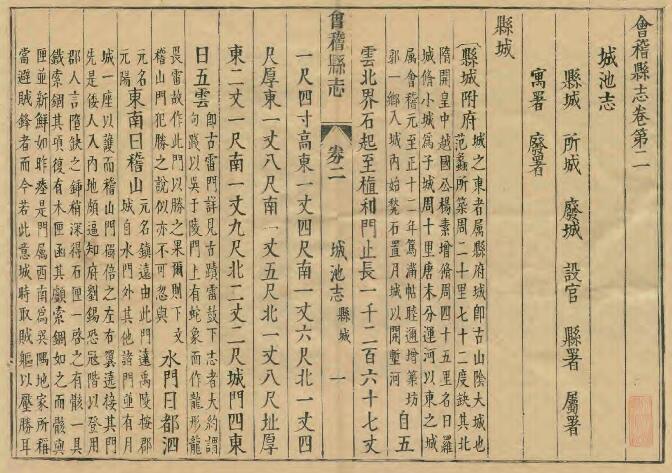 會稽縣志卷第二
城池志
縣城　所城　廢城　設官　縣署　屬署
寓署　廢署
縣城
縣城附府
城之東者屬縣府城卽古山陰大城也
范蠡所築周二十里七十二度缺其北
隋開皇中越國公楊素增脩周四十五里名曰羅
城脩小城爲子城周十里唐末分運河以東之城
屬會稽元至正十二年篤滿帖睦邇增築坊
郭一鄉入城內始甃石置月城以開塹河
自五
雲北界石起至植利門止長一千二百六十七丈
會稽縣志
卷二
城池志
縣城
一
一尺四寸高東一丈四尺南一丈六尺北一丈四
尺厚東一丈八尺南一丈五尺北一丈八尺址厚
東二丈一尺南一丈九尺北二丈二尺城門四東
曰五雲
卽古雷門詳見古蹟雷鼓下志者大約謂
句踐以吳于陵門上有蛇象而作龍形龍
畏雷故作此門以勝之果爾則下文
稽山門犯勝之說似亦不可忽與
水門曰都泗
元名
元陽
東南曰稽山
元名鎮遠由此門達禹陵按郡
城自水門外其他諸門並有月
城一座以護而稽山門獨倍之左右翼遠接其門
先是倭人入內地頗逼知府劉錫恐冦階以登用
郡人言隋缺之鍤稍深得石匣一啓之有骸一具
鐵索錮其項復有木匣函其顱索錮如之而骸與
匣並新鮮如昨瘞是門屬西南爲巽隅地家所稱
當避賊鋒者而今若此意城時取賊軀以壓勝耳